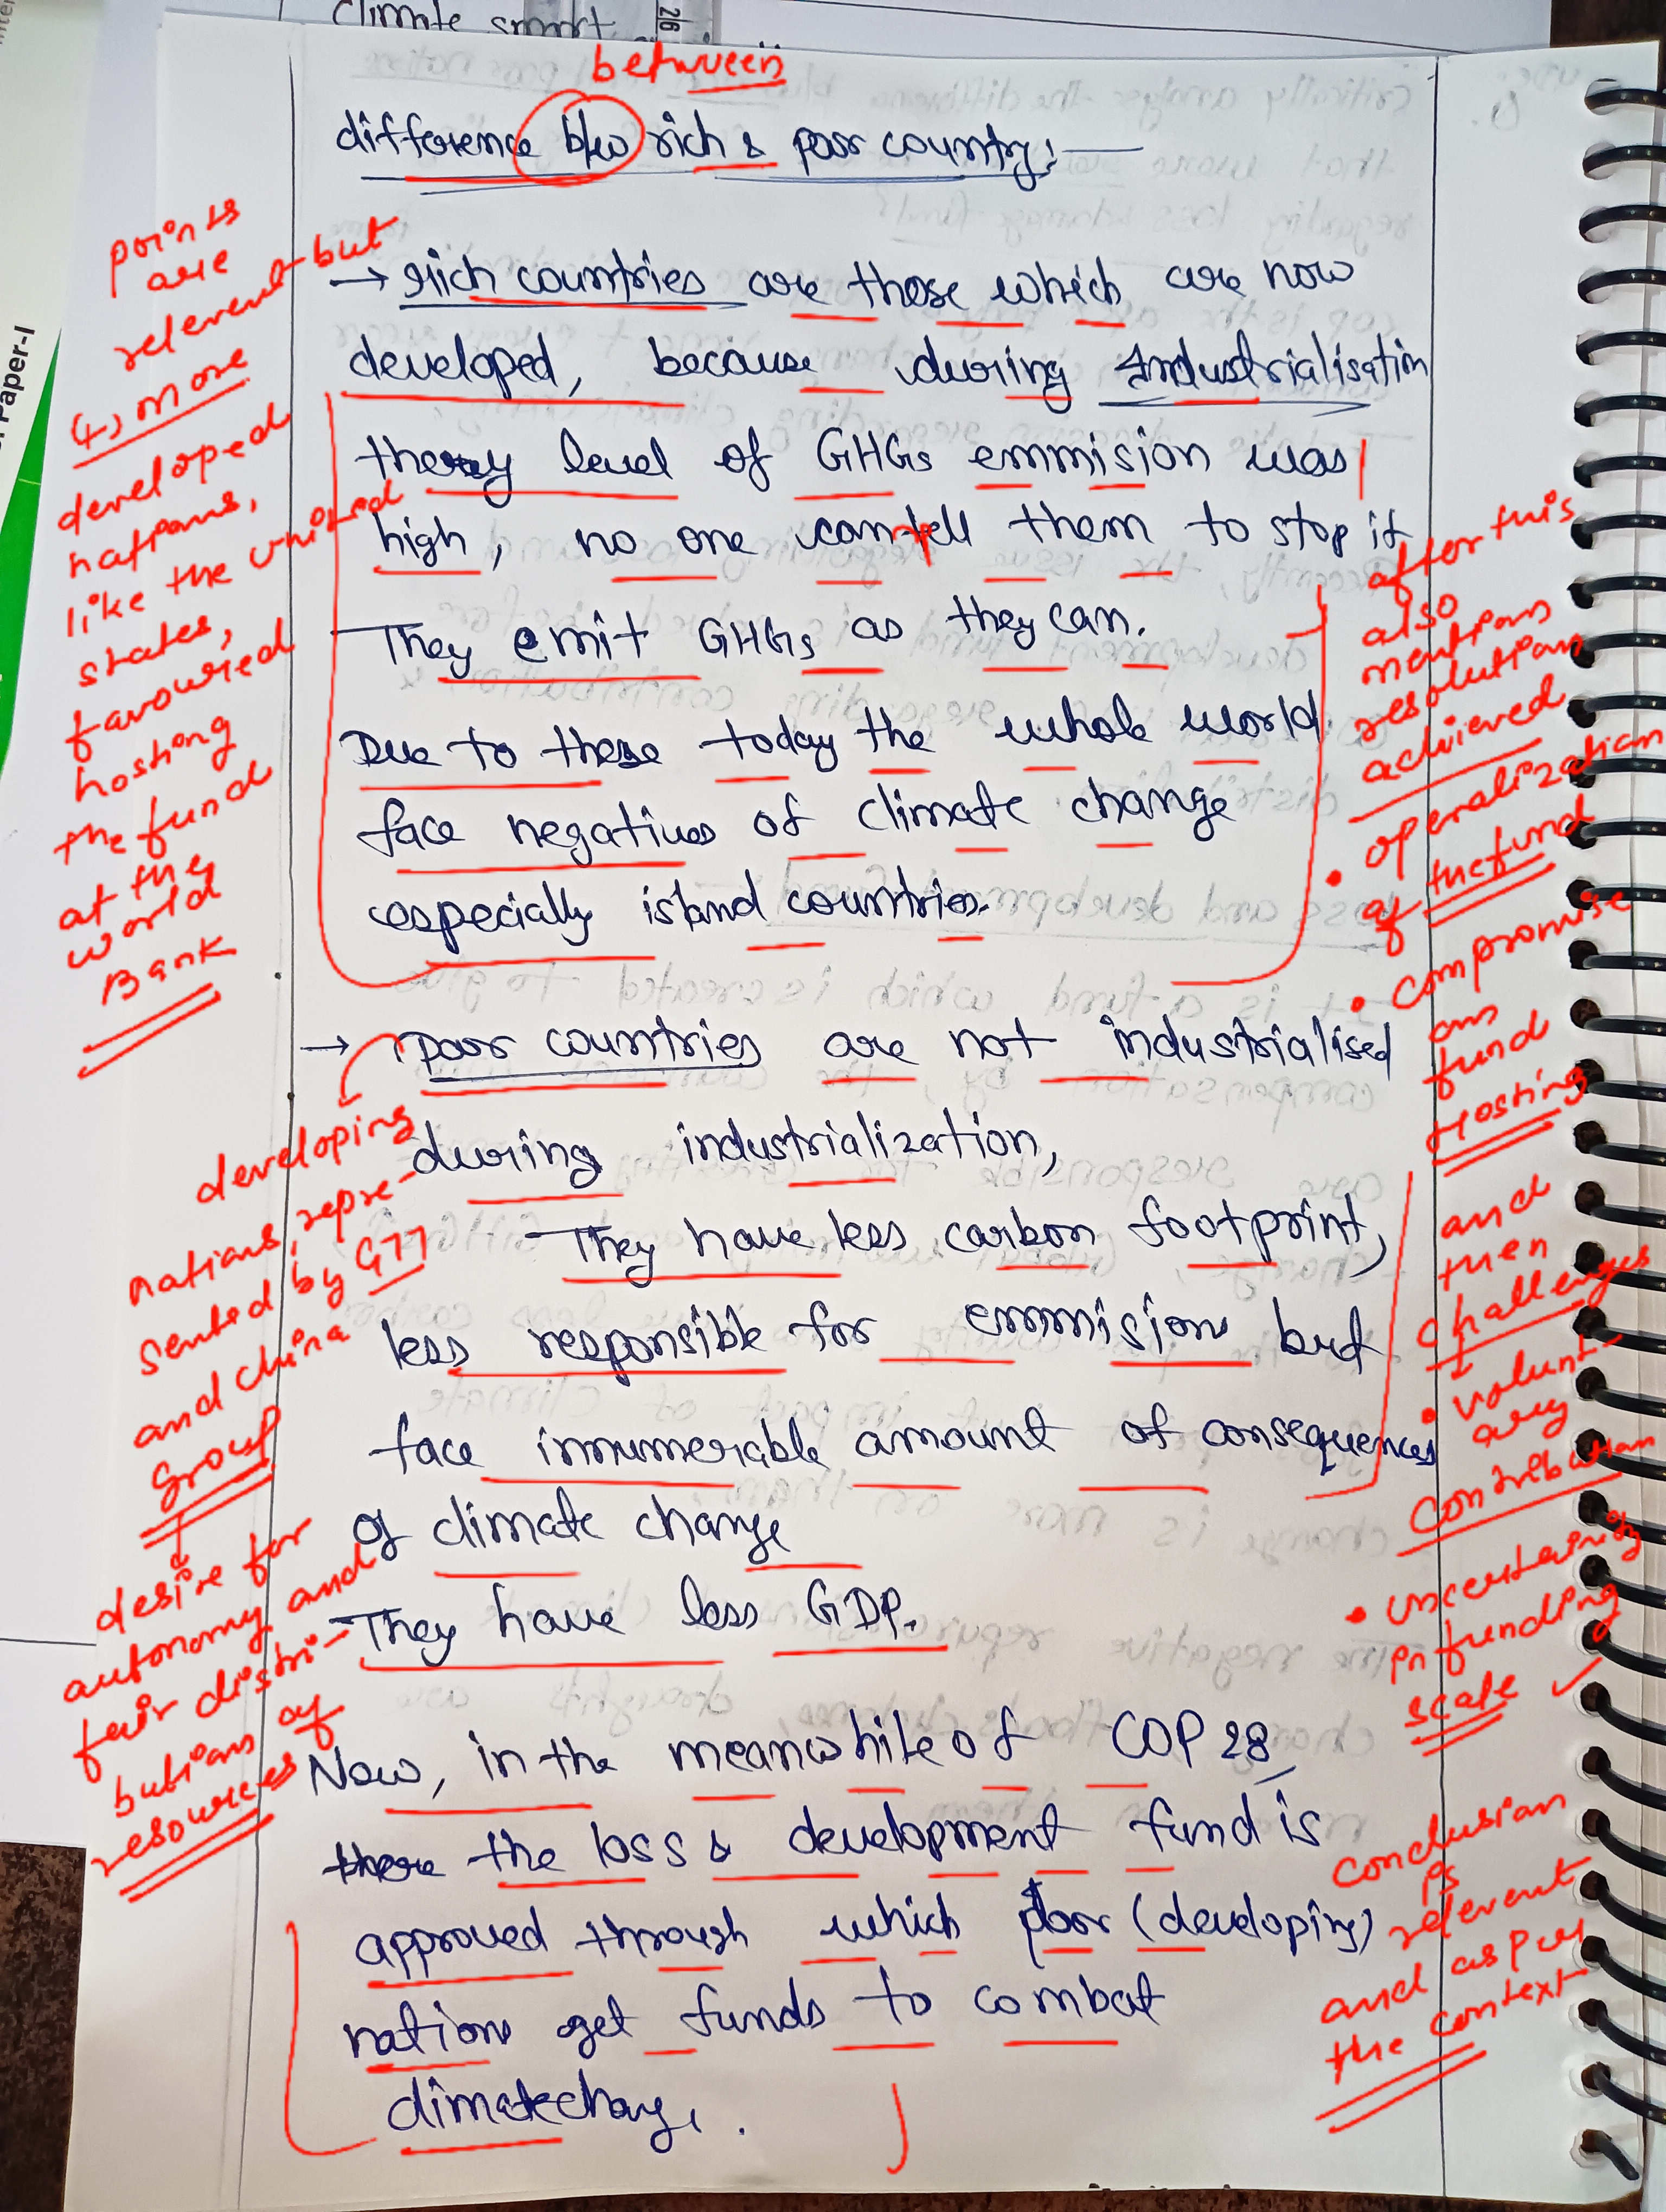 climate smart
26
Paper-I
between
difference b/w rich & poor country:—
→ rich countries are those which are now
developed, because during Industrialisation
they level of GHGs emmision was
high, no one can tell them to stop it
They emit GHGs as they can.
Due to these today the whole world
face negatives of climate change
especially island countries.
→ poor countries are not industrialised
during industrialization,
They have less carbon footprint,
less responsible for emmision but
face innumerable amount of consequences
of climate change
They have less GDP.
Now, in the meanwhile of COP 28
there the loss & development fund is
approved through which poor (developing)
nation get funds to combat
climate change.
points
are
relevent but
more
developed
nations,
like the united
states,
favoured
hosting
the fund
at the
world
Bank
developing
nations, repre-
sented by G77
and china
group
desire for
autonomy and
fair distri-
bution of
resources
after this
also
mention
resolution
achieved
• operalization
of the fund
• compromise
on
fund
Hosting
and
then
challenges
• volunt-
ary
contribution
• uncertainity
in funding
scale ✓
conclusion
is
relevent
and as per
the context